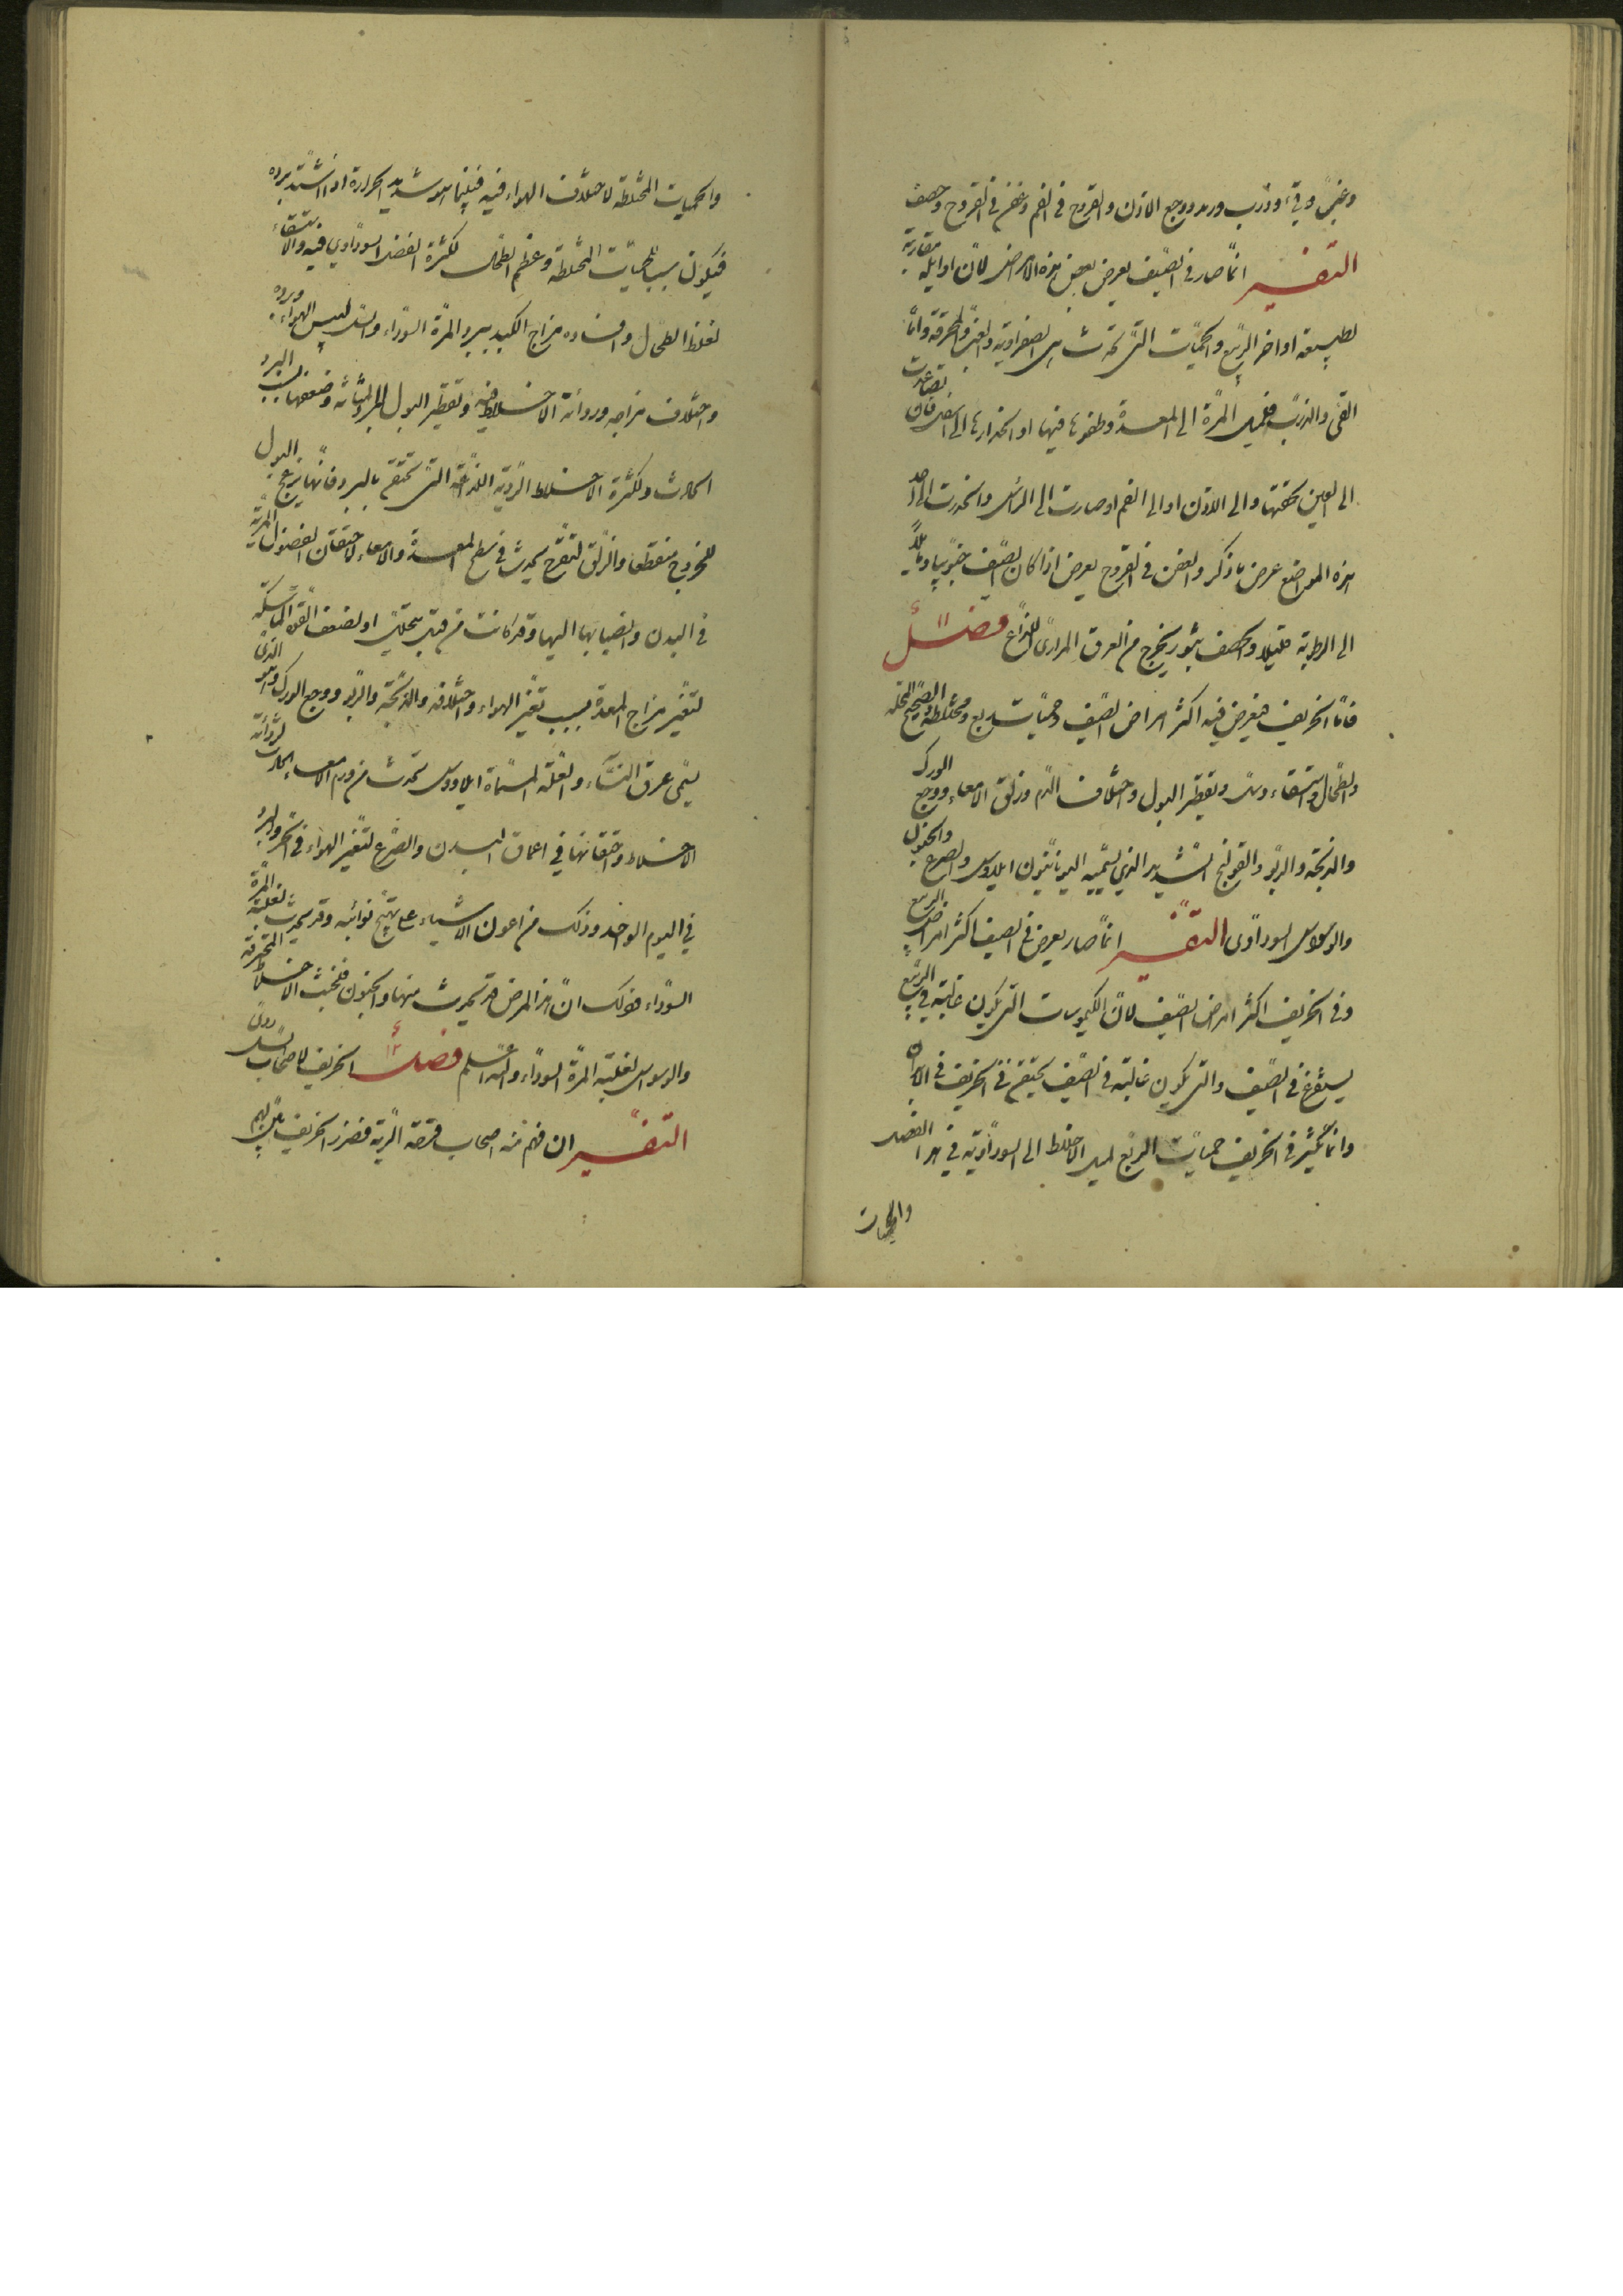 وغب وقيء وذرب ورمد ووجع الاذن والقروح في الفم وعفن في القروح وحصف
التفسير انما صار في الصيف يعرض بعض هذه الامراض لان اوايله مقاربة
لطبيعة اواخر الربيع والحميات التي تحدث هي الصفراوية والغب والمحرقة واما
القيء والذرب فلميل المرة الى المعدة وطفوها فيها او انحدارها الى اسفل فان تصاعدت
الى العين لخفتها والى الاذن او الى الفم او صارت الى الراس وانحدرت الى احد
هذه المواضع عرض ما ذكر والعفن في القروح يعرض اذا كان الصيف جنوبيا ومايلا
الى الرطوبة قليلا والحصف بثور يخرج من العرق المراري اللذاع فصل
فاما الخريف فيعرض فيه اكثر امراض الصيف وحميات ربع ومختلطة
والطحال واستسقاء وسل وتقطير البول واختلاف الدم وزلق الامعاء ووجع الورك
والذبحة والربو والقولنج الشديد الذي يسميه اليونانيون ايلاوس والصرع والجنون
والوسواس السوداوي التفسير انما صار يعرض في الصيف اكثر امراض الربيع
وفي الخريف اكثر امراض الصيف لان الكيموسات التي يكون غالبة في الربيع
يستفرغ في الصيف والتي يكون غالبة في الصيف يحتقن في الخريف في الابدان
وانما يكثر في الخريف حميات الربع لميل الاخلاط الى السوداوية في هذا الفصل
والحميات
والحميات المختلطة لاختلاف الهواء فيه فبينما هو شديد الحرارة اذا اشتد برده
فيكون سببا للحميات المختلطة وعظم الطحال لكثرة الفضل السوداوي فيه والاستسقاء
لغلظ الطحال وافساده مزاج الكبد ببرد المرة السوداء والسل ليبس الهواء وبرده
واختلاف مزاجه ورداءة الاخلاط فيه وتقطير البول لبرد المثانة وضعفها بسبب البرد
الحادث ولكثرة الاخلاط الردية اللذاعة التي تحتقن بالبرد فانها يزعج البول
للخروج منقطعا والزلق لتقرح يحدث في سطح المعدة والامعاء لاحتقان الفضول المرية
في البدن وانصبابها اليها وقد كانت من قبل يتحلل او لضعف القوة الماسكة
لتغير مزاج المعدة بسبب تغير الهواء واختلافه والذبحة والربو ووجع الورك وهو الذي
يسمى عرق النساء والعلة المسماة ايلاووس تحدث من ورم الامعاء الحادث لرداءة
الاخلاط واحتقانها في اعماق البدن والصرع لتغير الهواء في الحر والبرد
في اليوم الواحد وذلك من اعون الاشياء على تهيج نوائبه وقد يحدث لغلبة المرة
السوداء فذلك ان هذا المرض قد يحدث منها والجنون فلخبث الاخلاط المحترقة
والوسواس لغلبة المرة السوداء والله اعلم فصل الخريف لاصحاب السل ردي
التفسير ان فهم منه اصحاب قرحة الرية فضرر الخريف بهم